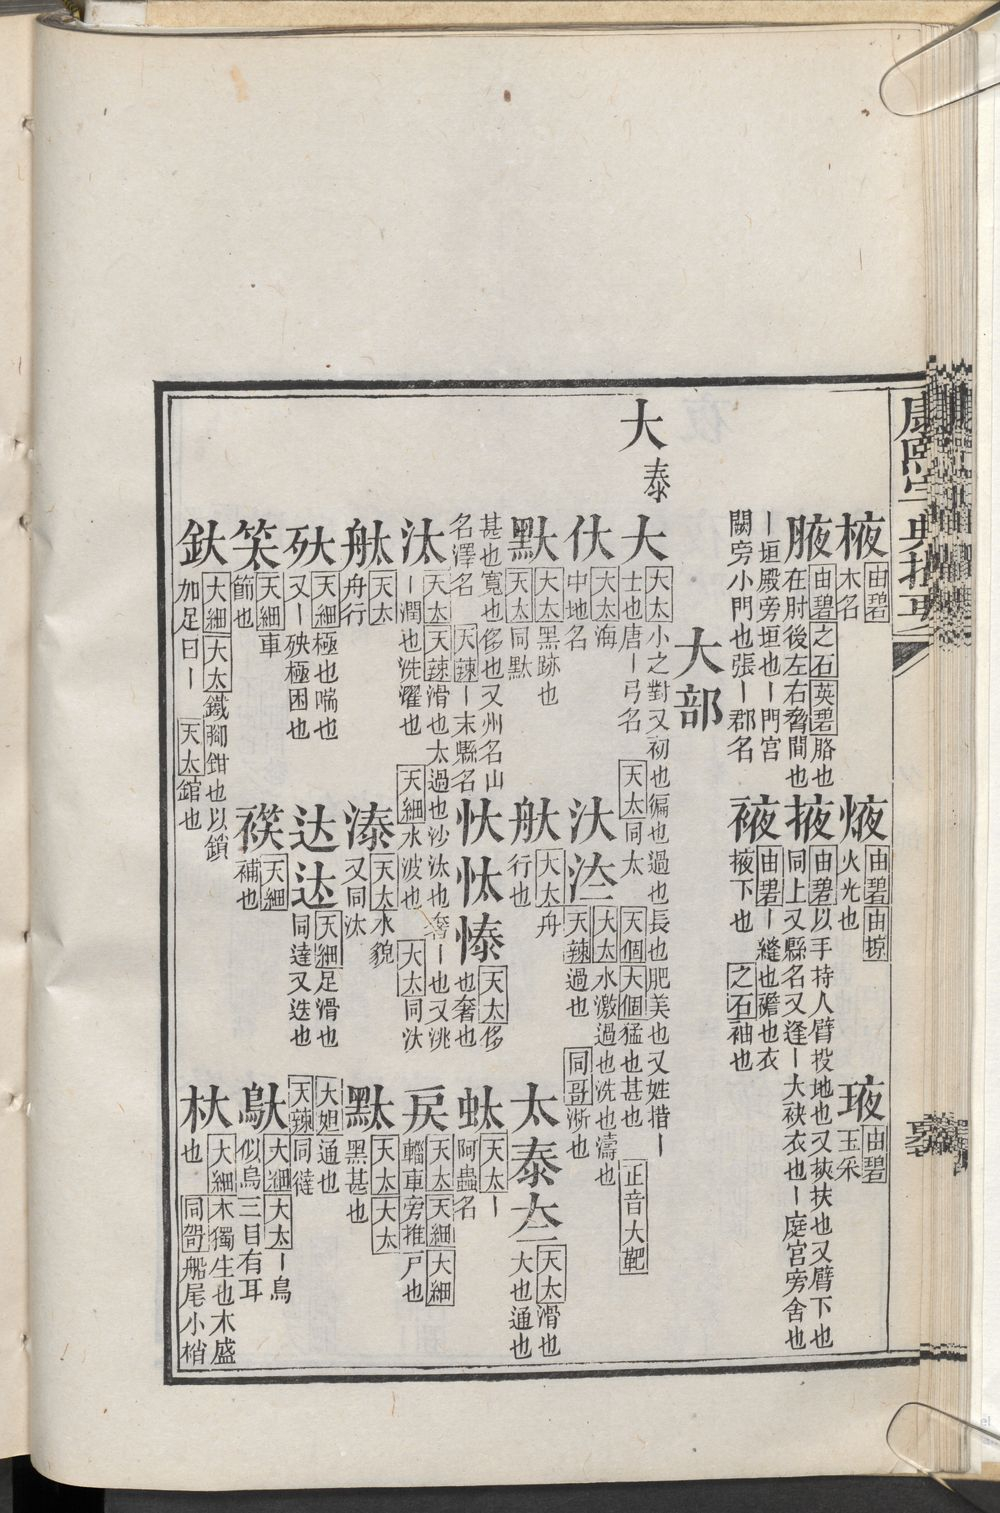 康熙字典撮要
棭 由碧 木名
焲 由碧 由掠 火光也
㻉 由碧 玉采
腋 由碧 之石 英碧 胳也在肘後左右脅間也
掖 由碧 以手持人臂投地也又挾扶也又臂下也同上又縣名又逢丨大袂衣也丨庭宮旁舍也
丨垣殿旁垣也丨門宮闕旁小門也張丨郡名
袯 由碧 丨縫也襜也衣掖下也 之石 袖也
大部
大 泰
大 大太 小之對又初也徧也過也長也肥美也又姓措丨士也唐丨弓名 天太 同太 天個 大個 猛也甚也 正音 大靶
㐲 大太 海中地名
汏 㳠 大太 水激過也洗也濤也 天辣 過也 同哥 淅也
䵣 大太 黑跡也 天太 同黙
舦 大太 舟行也
太 泰 夳 天太 滑也大也通也
甚也寬也侈也又州名山名澤名 天辣 丨末縣名
忕 忲 㥭 天太 侈也奢也
蚮 天太 丨阿蟲名
汰 天太 天辣 滑也太過也沙汰也奢丨也又洮丨潤也洗濯也 天細 水波也 大太 同汏
戻 天太 天細 大細 輜車旁推戸也
舦 天太 舟行
溙 天太 水貌又同汰
䵣 天太 大太 黑甚也
㰧 天細 極也喘也又丨殃極困也
达 迖 天細 足滑也同達又迭也
大妲 通也 天辣 同㣵
笑 天細 車節也
䙭 天細 補也
䲦 大逥 大太 丨鳥似烏三目有耳
釱 大細 大太 鐵脚鉗也以鎖加足曰丨 天太 錧也
杕 大細 木獨生也木盛也 同哿 船尾小梢